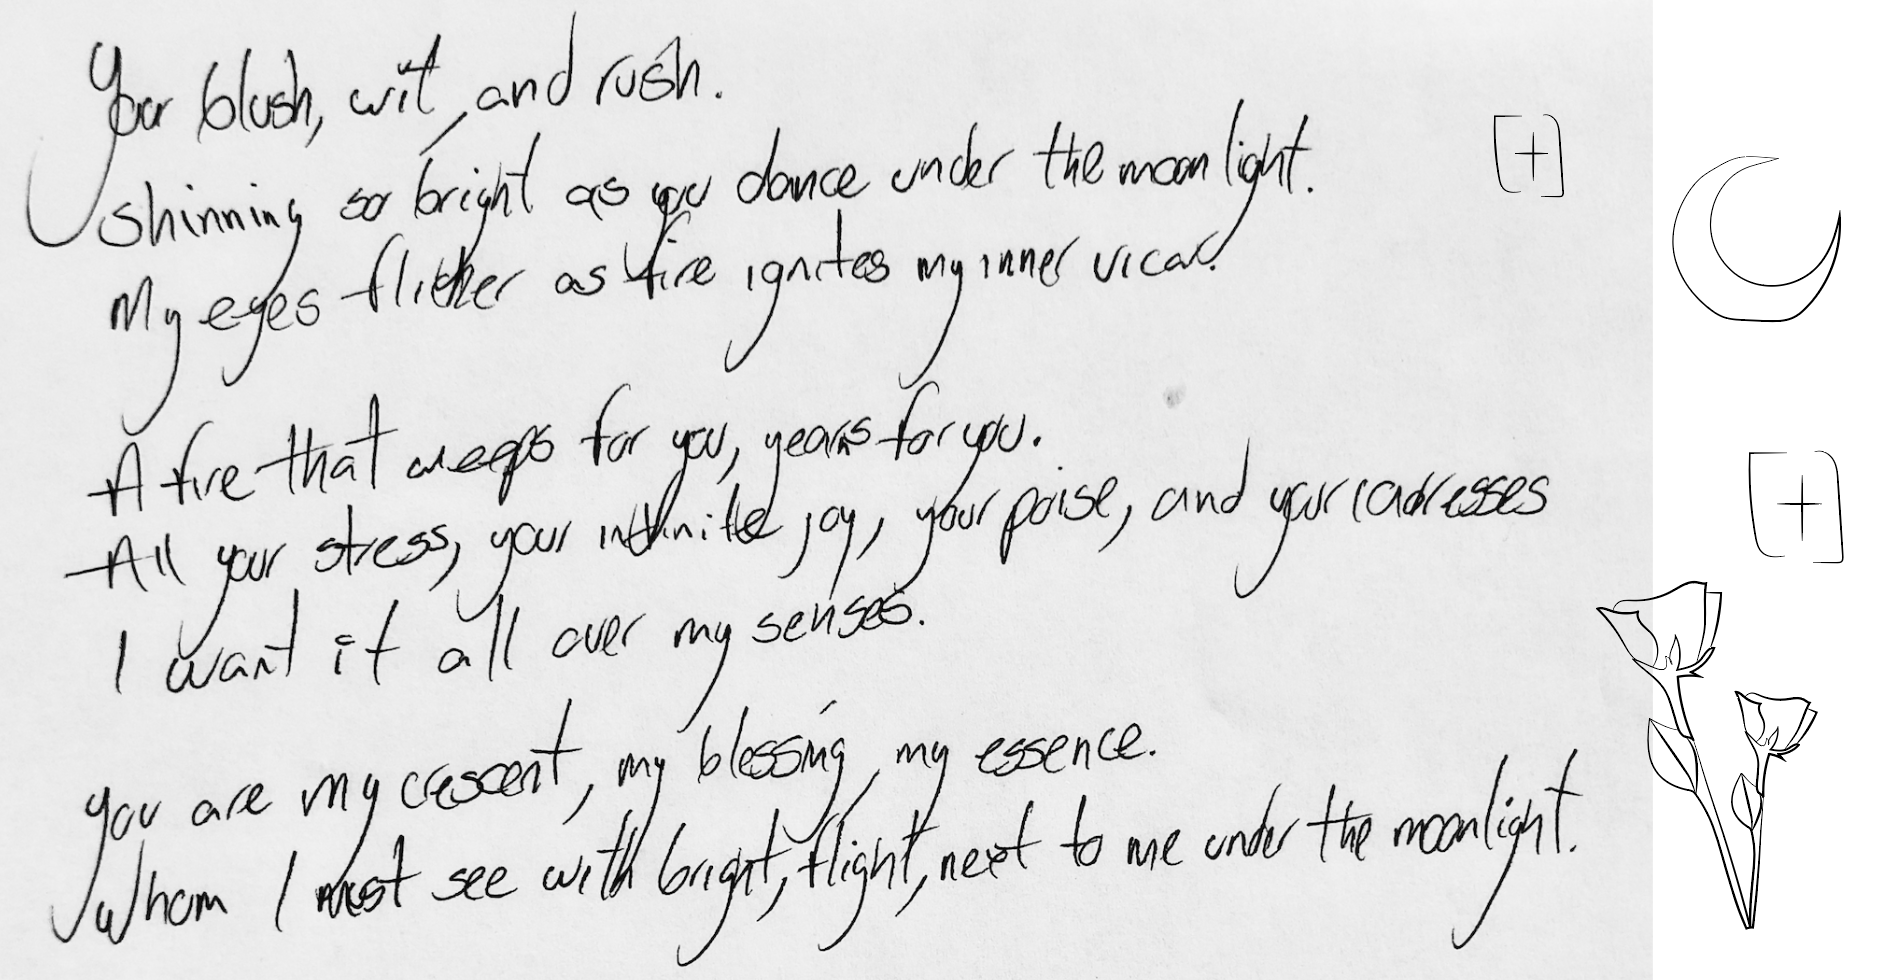 Your blush, wit, and rush.
shinning so bright as you dance under the moonlight.
My eyes flicker as fire ignites my inner vicar.
A fire that weeps for you, years for you.
All your stress, your infinite joy, your poise, and your caresses
I want it all over my senses.
you are my crescent, my blessing, my essence.
Whom I must see with bright, flight, next to me under the moonlight.
[+]
[+]